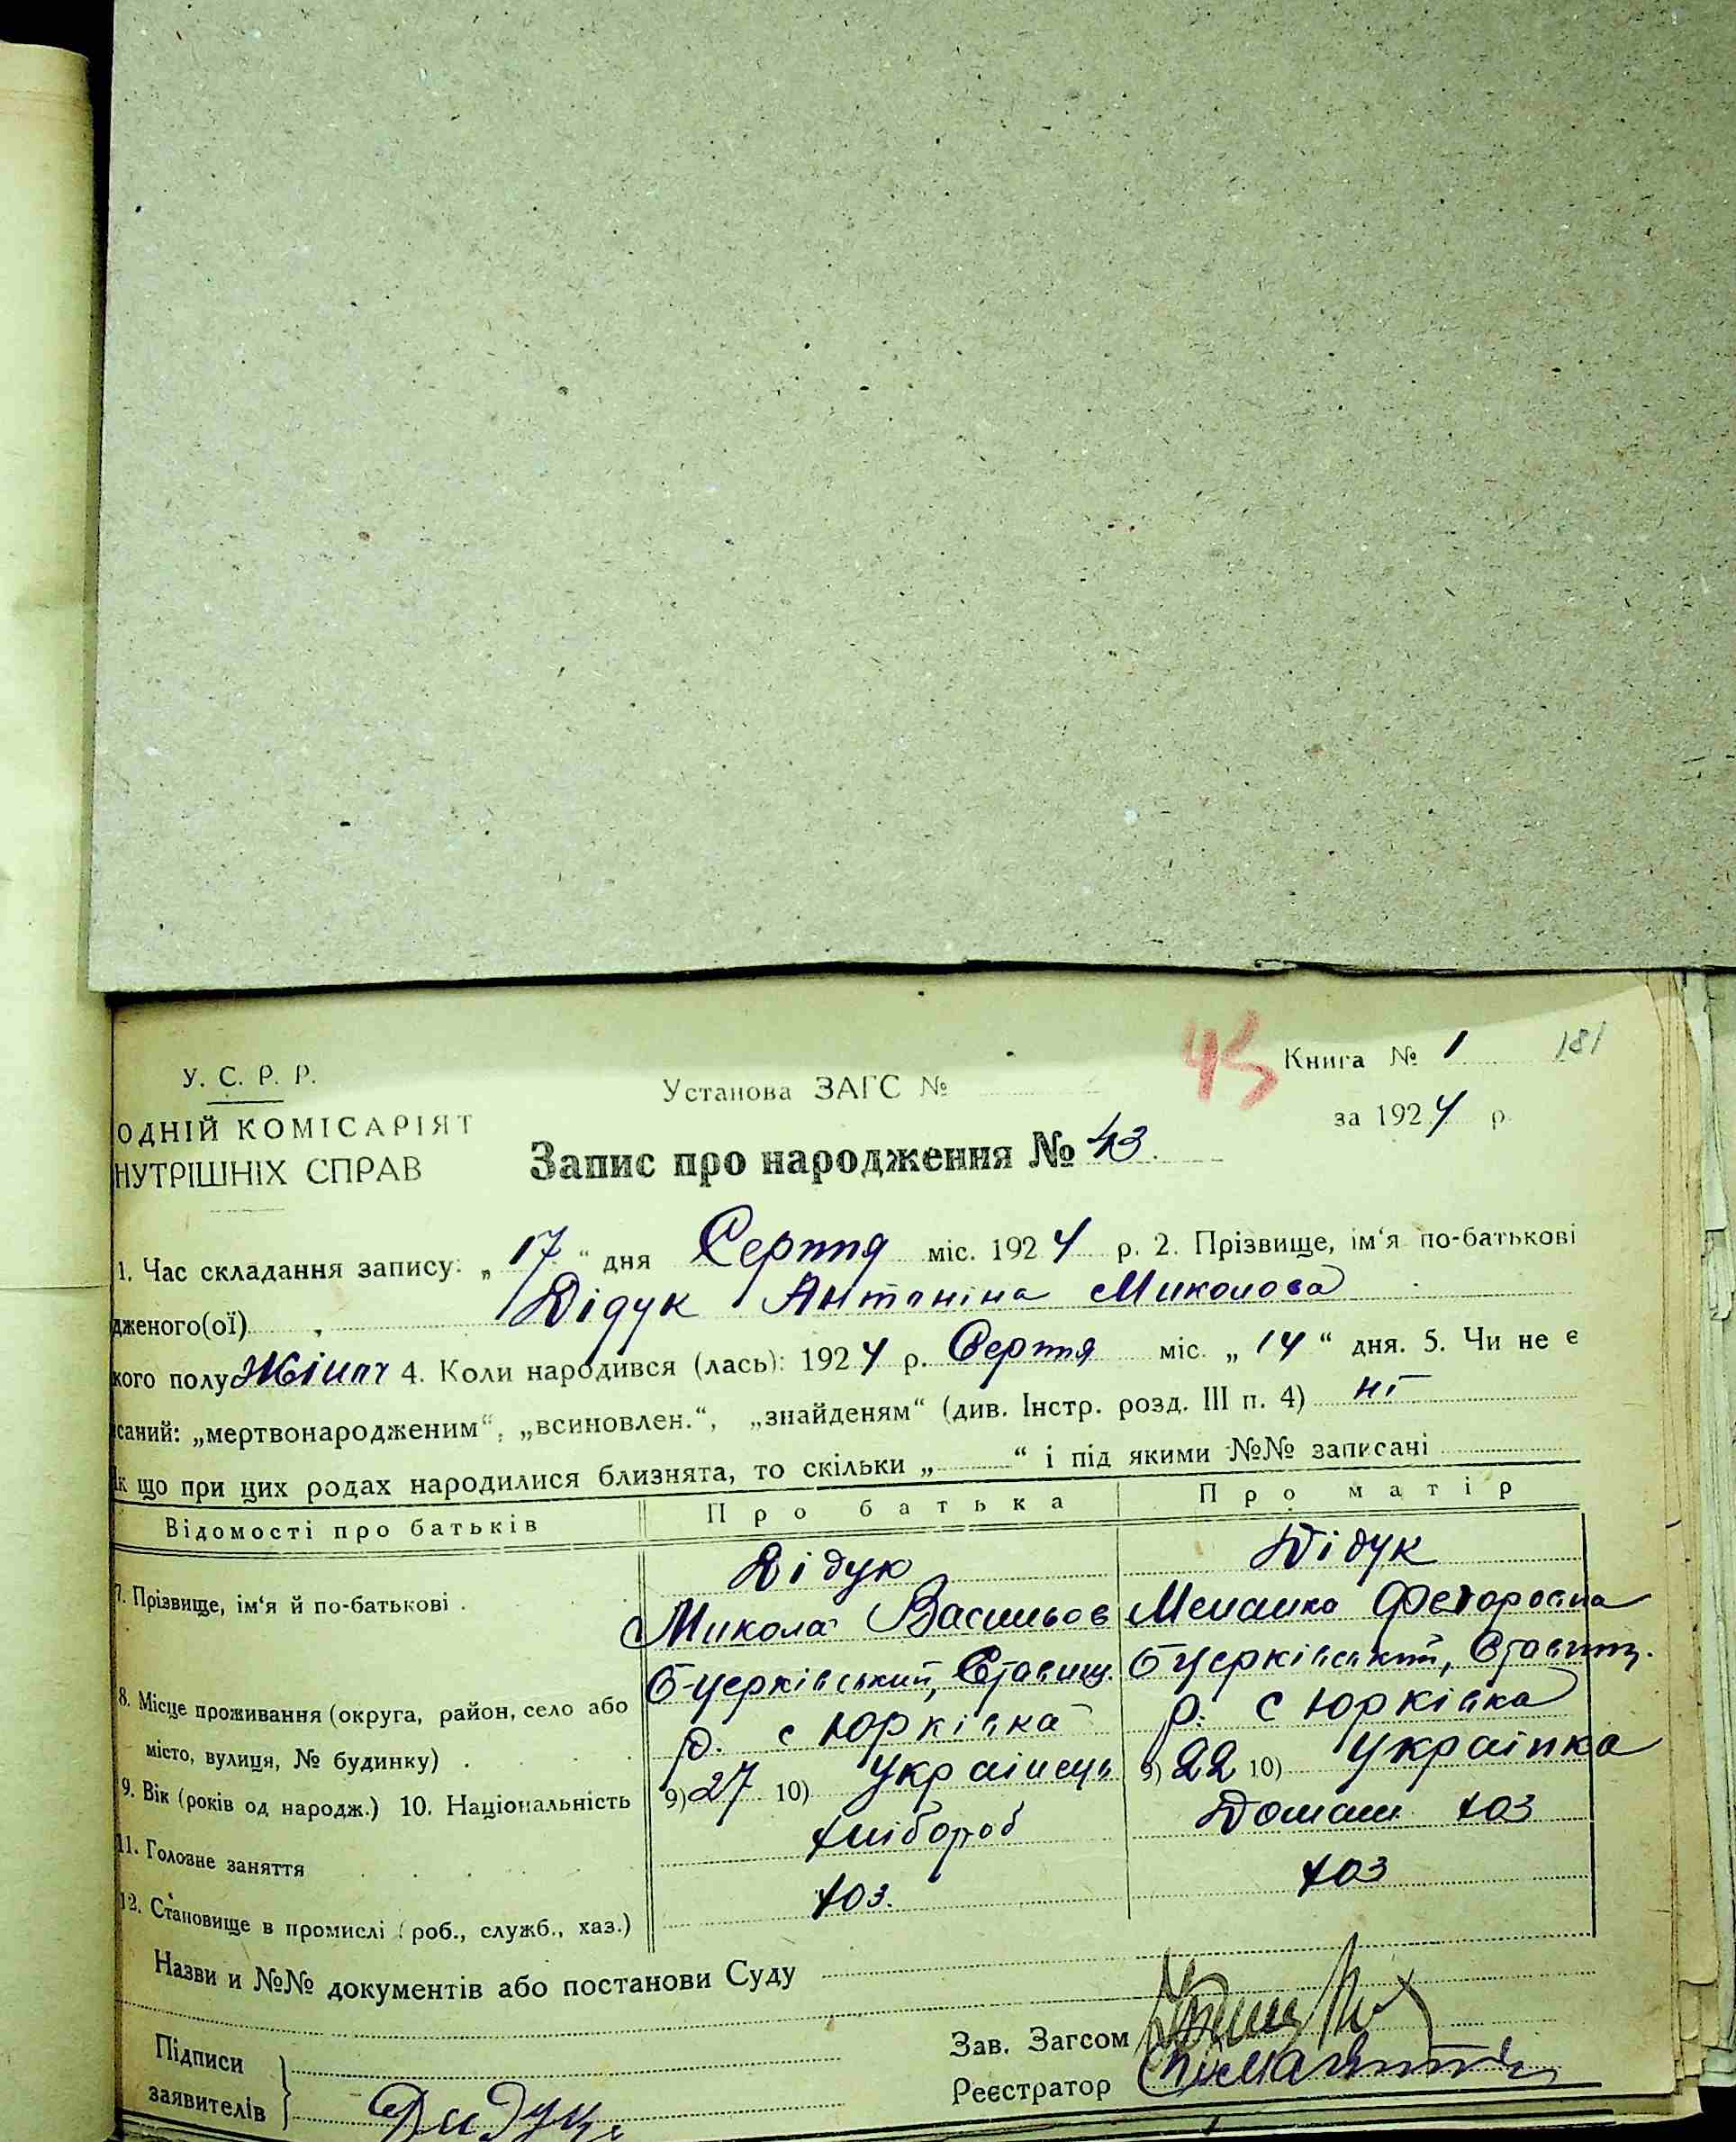 У. С. Р. Р.
ОДНІЙ КОМІСАРІЯТ
НУТРІШНІХ СПРАВ
Установа ЗАГС №
Запис про народження № 43.
45
Книга № 1
181
за 1924 р.
1. Час складання запису: „17“ дня Серпня міс. 1924 р. 2. Прізвище, ім‘я по-батькові
дженого(ої) Дідук Антоніна Миколова
кого полу Жіноч 4. Коли народився (лась): 1924 р. Серпня міс. „14“ дня. 5. Чи не є
саний: „мертвонародженим“, „всиновлен.“, „знайденям“ (див. Інстр. розд. III п. 4) ні
к що при цих родах народилися близнята, то скільки „ “ і під якими №№ записані
Відомості про батьків Про батька Про матір
7. Прізвище, ім‘я й по-батькові . Дідук Дідук
Микола Васильов Меланка Федоровна
8. Місце проживання (округа, район, село або Б-церківський, Ставищ. Б церківський, Ставищ.
місто, вулиця, № будинку) . р. с Юрківка р. с Юрківка
9. Вік (років од народж.) 10. Національність 9) 27 10) Українець 9) 22 10) Українка
11. Головне заняття хлібороб Домаш хоз
12. Становище в промислі (роб., служб., хаз.) хоз. хоз
Назви и №№ документів або постанови Суду
Підписи
заявителів
Дидук
Зав. Загсом
Реєстратор